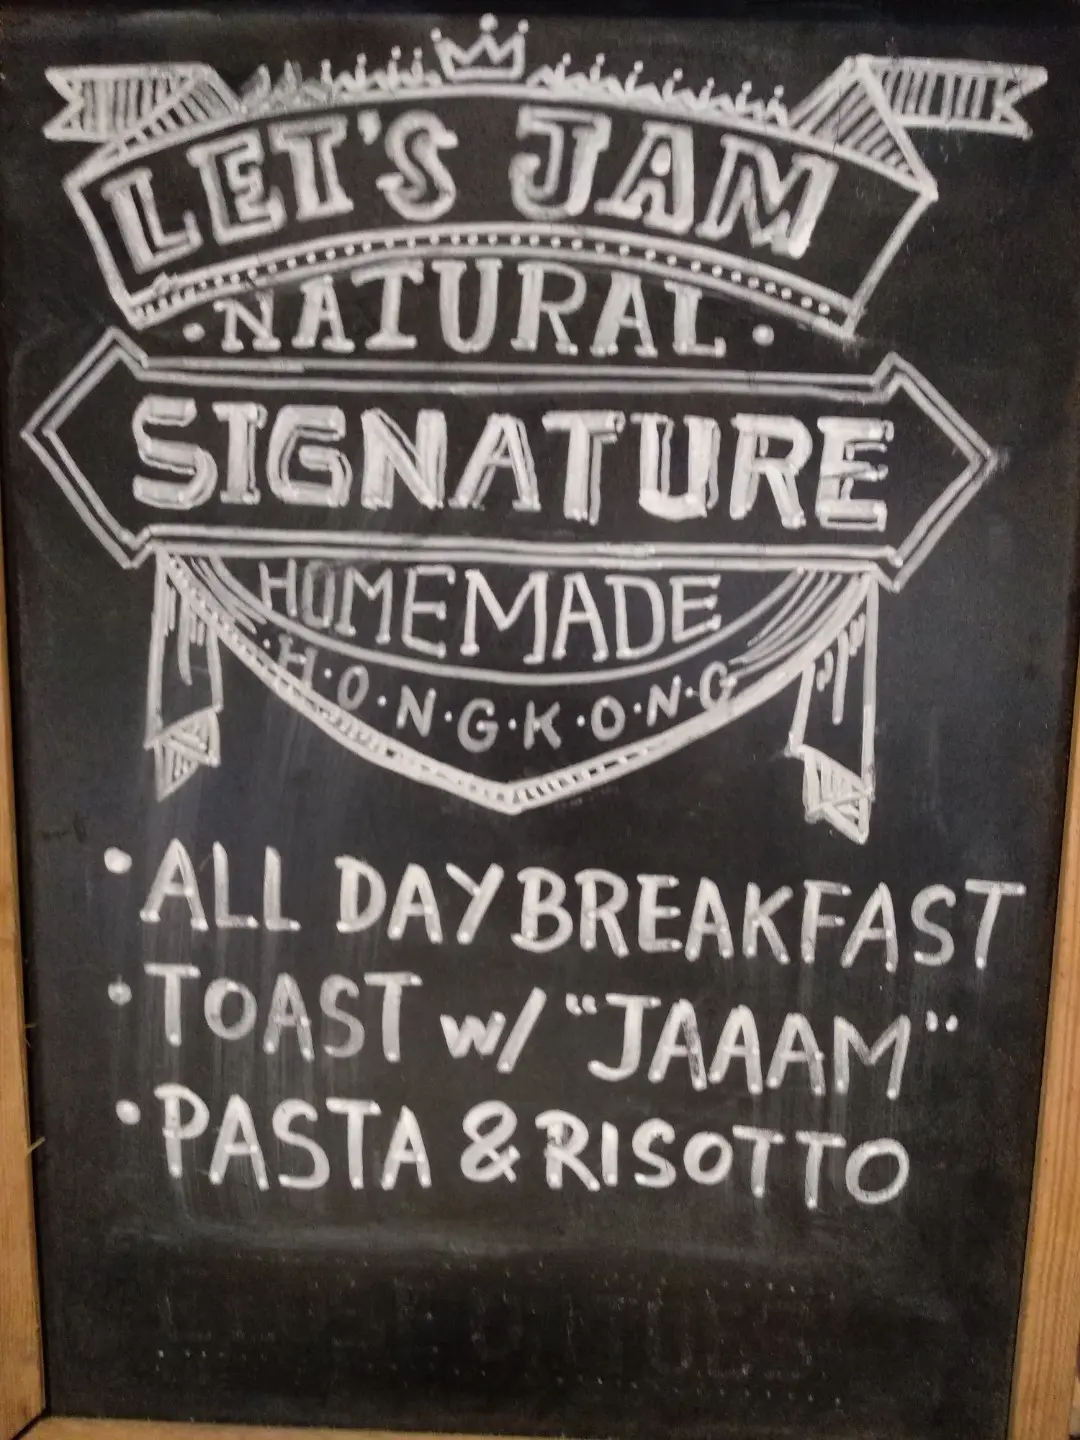 LET'S JAM
·NATURAL·
SIGNATURE
HOMEMADE
H·O·N·G·K·O·N·G
• ALL DAY BREAKFAST
• TOAST w/ "JAAAM"
• PASTA & RISOTTO